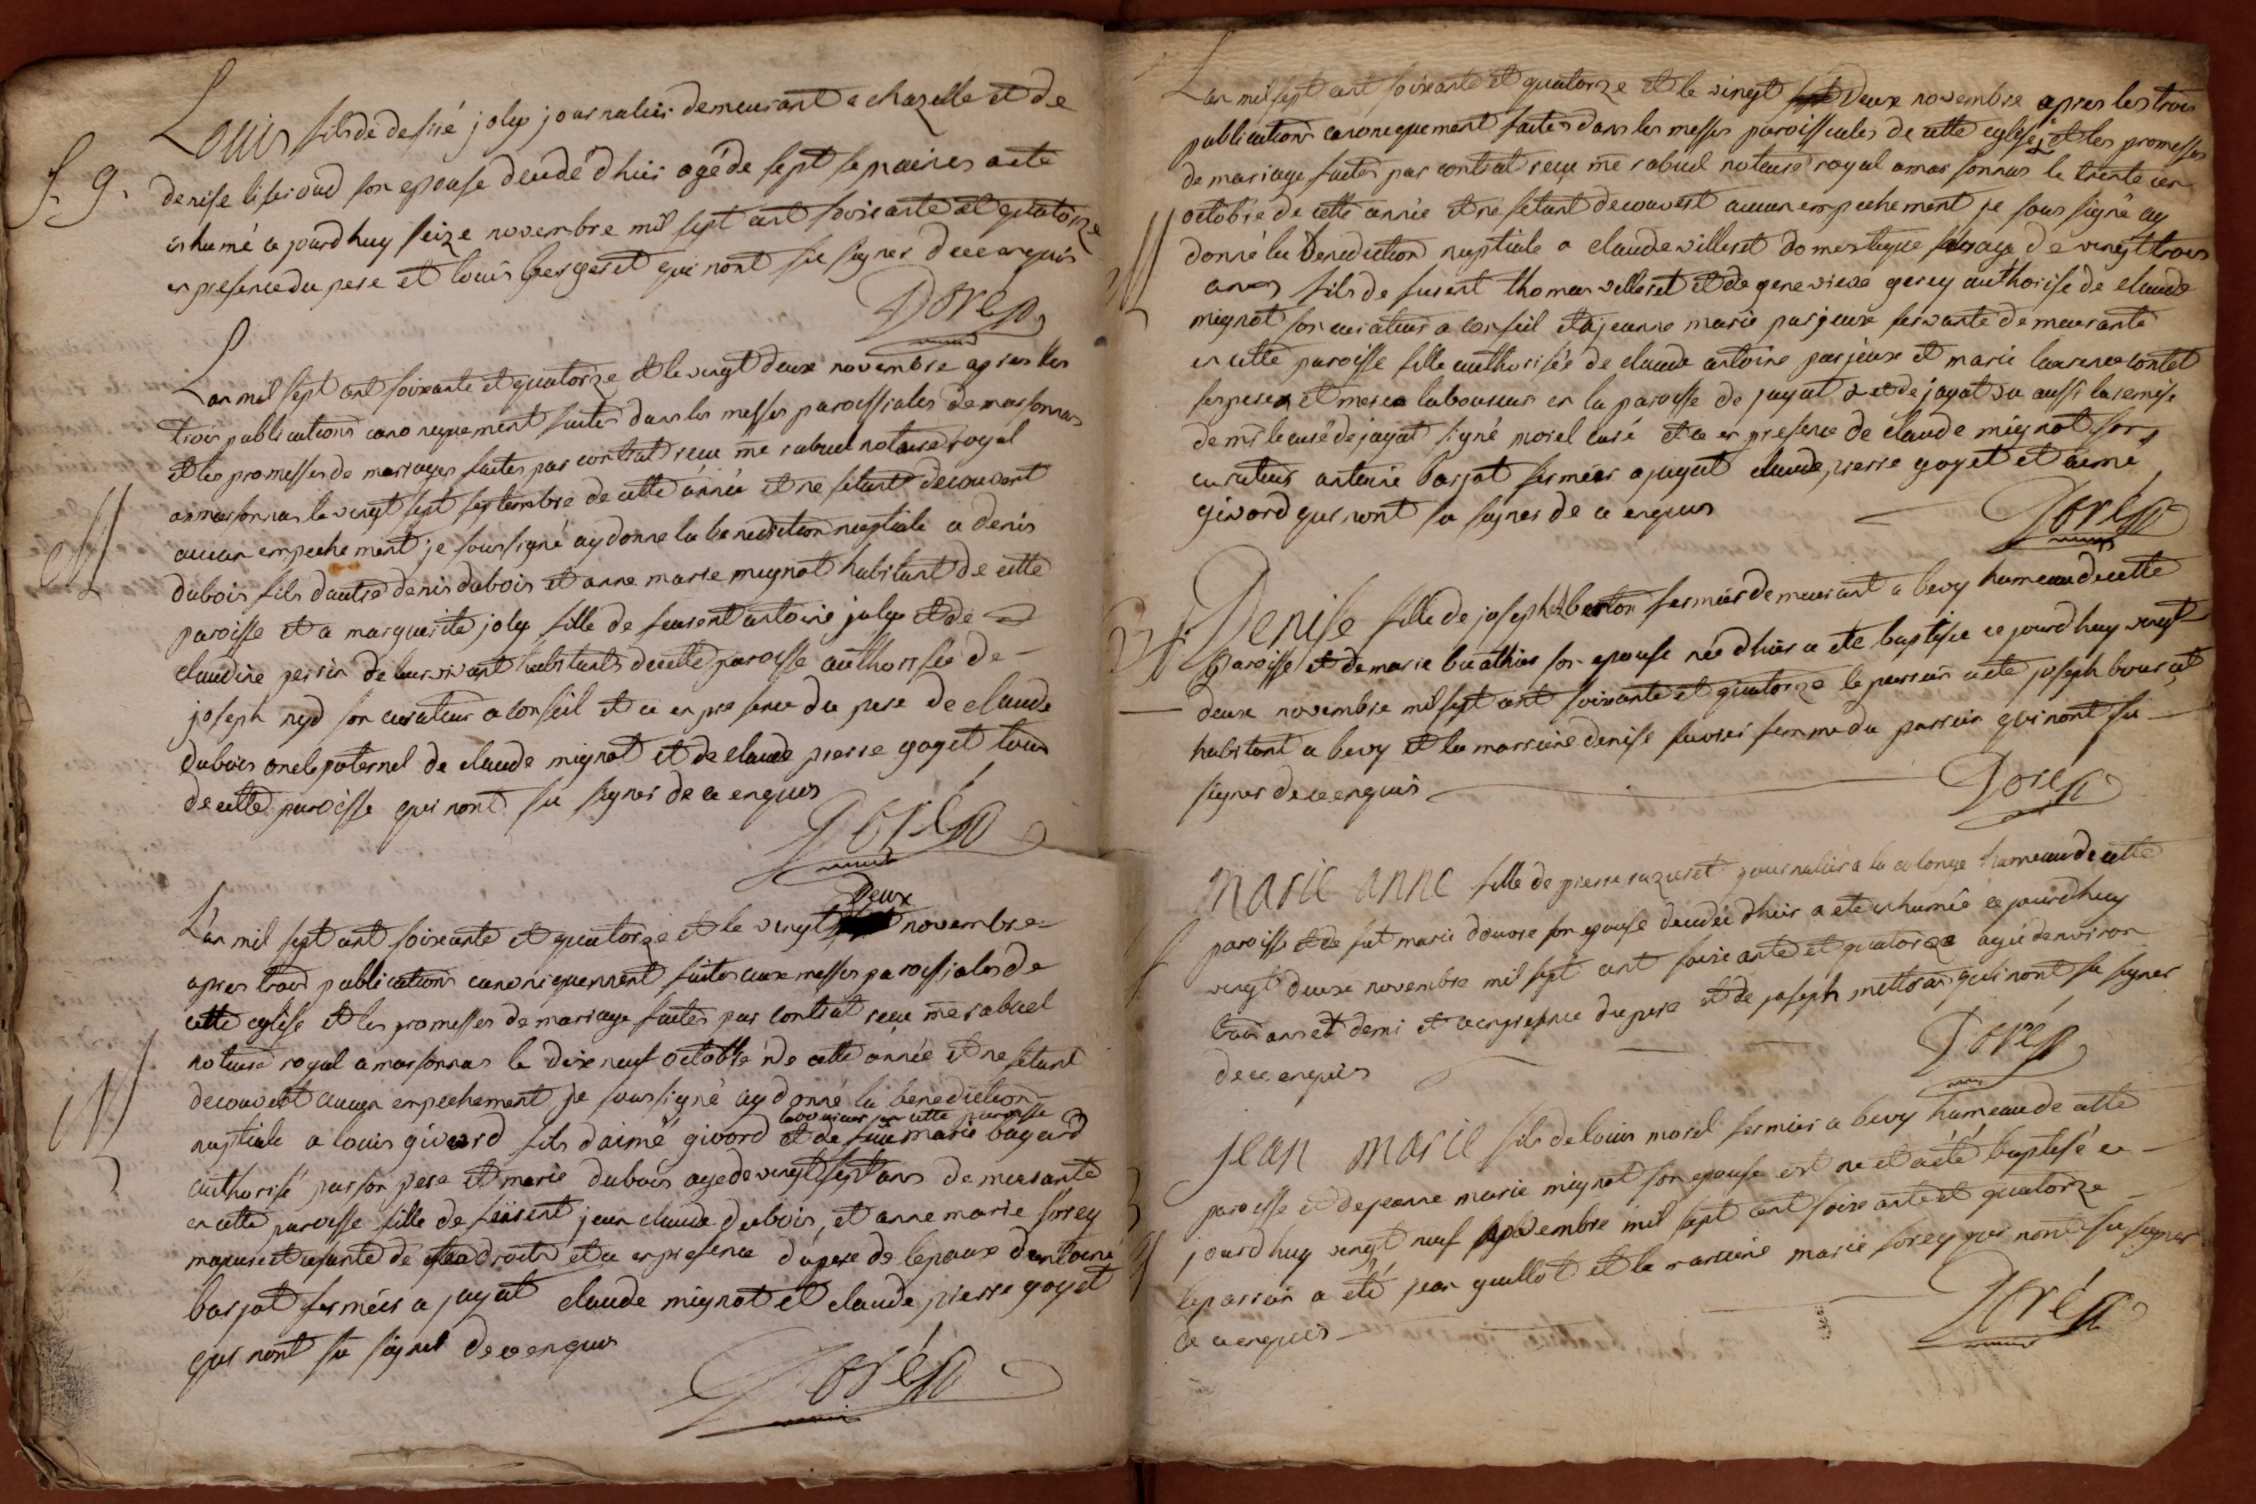 Louis fils de desiré joly journalier demeurant a chazelle et de
S. g. denise liseroud son epouse decedé d'hier agé de sept semaines a eté
inhumé ce jourdhuy seize novembre mil sept cent soixante et quatorze
en presence du pere et louis bergeret qui n'ont su signer de ce enquis
Doré
L'an mil sept cent soixante et quatorze et le vingt deux novembre apres les
trois publications canoniquement faites dans les messes paroissiales de marsonnas
et les promesses de mariages faites par contrat recu me rabuel notaire royal
a marsonnas le vingt sept septembre de cette année et ne setant decouvert
M aucun empechement je soussigné ay donne la benediction nuptiale a denis
dubois fils dautre denis dubois et anne marie mignot habitant de cette
paroisse et a marguerite joly fille de feu sent antoine joly et de
claudine perrin de leur vivant habitants de cette paroisse authorisée de
joseph nyd son curateur a conseil et ce en presence du pere de claude
dubois oncle paternel de claude mignot et de claude pierre goyet tous
de cette paroisse qui nont su signer de ce enquis
Doré
Deux
L'an mil sept cent soixante et quatorze et le vingt novembre
apres trois publications canoniquement faites aux messes paroissiales de
cette eglise et les promesses de mariage faites par contrat recu me rabuel
notaire royal a marsonnas le dix neuf octobre de cette année et ne setant
M decouvert aucun empechement je soussigné ay donné la benediction
laboureur en cette paroisse
nuptiale a louis givord fils daimé givord et de feüe marie bayard
authorisé par son pere et marie dubois agé de vingt sept ans demeurante
en cette paroisse fille de feu sent jean claude dubois, et anne marie sorrey
majeure et usante de ses droits et ce en presence du pere de lepoux dantoine
barjot fermier a jayat claude mignot et claude pierre goyet
qui nont su signer de ce enquis
Doré
L'an mil sept cent soixante et quatorze et le vingt deux novembre apres les trois
publications canoniquement faites dans les messes paroissiales de cette eglise et les promesses
de mariage faites par contrat recu me rabuel notaire royal a marsonnas le trente un
octobre de cette année et ne setant decouvert aucun empechement je soussigné ay
M donné la benediction nuptiale a claude villeret domestique agé de vingt trois
ans fils de fu sent thomas villeret et de genevieve gerey authorisé de claude
mignot son curateur a conseil et a jeanne marie parjeux servante demeurante
en cette paroisse fille authorisée de claude antoine parjeux et marie laurence contet
ses pere et mere laboureur en la paroisse de jayat et de jayat vu aussi la remise
de mr le curé de jayat signé morel curé et ce en presence de claude mignot son
curateur antoine barjot fermier a jayat claude pierre goyet et aimé
givord qui nont su signer de ce enquis
Doré
Denise fille de joseph berton fermier demeurant a bevy hameau de cette
B paroisse et de marie buathier son epouse née d'hier a eté baptisée ce jourdhuy vingt
deux novembre mil sept cent soixante et quatorze le parrain a eté joseph bourcet
habitant a bevy et la marraine denise favrei femme du parrain qui nont su
signer de ce enquis
Doré
Marie anne fille de pierre razuret journalier a la colonge hameau de cette
S paroisse et de fut marie donore son epouse decedée dhier a eté inhumée ce jourdhuy
vingt deux novembre mil sept cent soixante et quatorze agée d'environ
trois ans et demi et ce en presence du pere et de joseph mettran qui nont su signer
de ce enquis
Doré
Jean marie fils de louis morel fermier a bevy hameau de cette
paroisse et de jeanne marie mignot son epouse est né et a eté baptisé ce
jourdhuy vingt neuf novembre mil sept cent soixante et quatorze
le parrain a eté jean guillot et la marraine marie sorrey qui nont su signer
de ce enquis
Doré